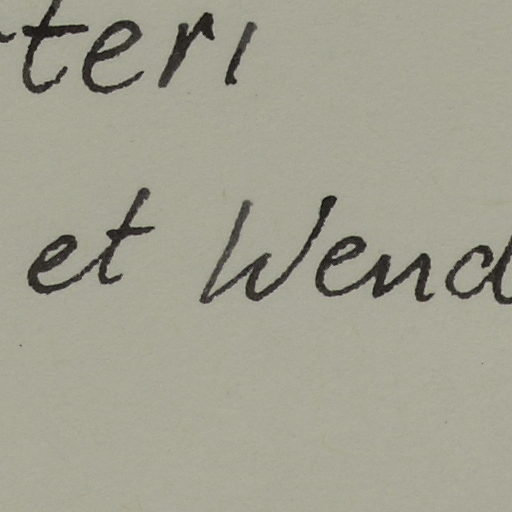 teri
et Wend